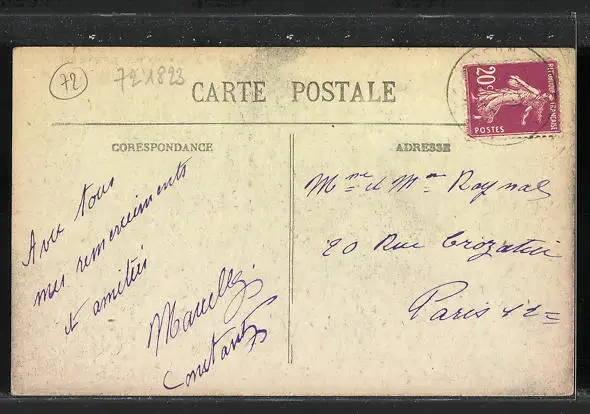 72
721823
CARTE POSTALE
20c
POSTES
CORESPONDANCE
ADRESSE
Avec tous
mes remerciements
et amitiés
Marcelle
Constant
Mme et Mr Raynal
20 Rue Crozatier
Paris 12e